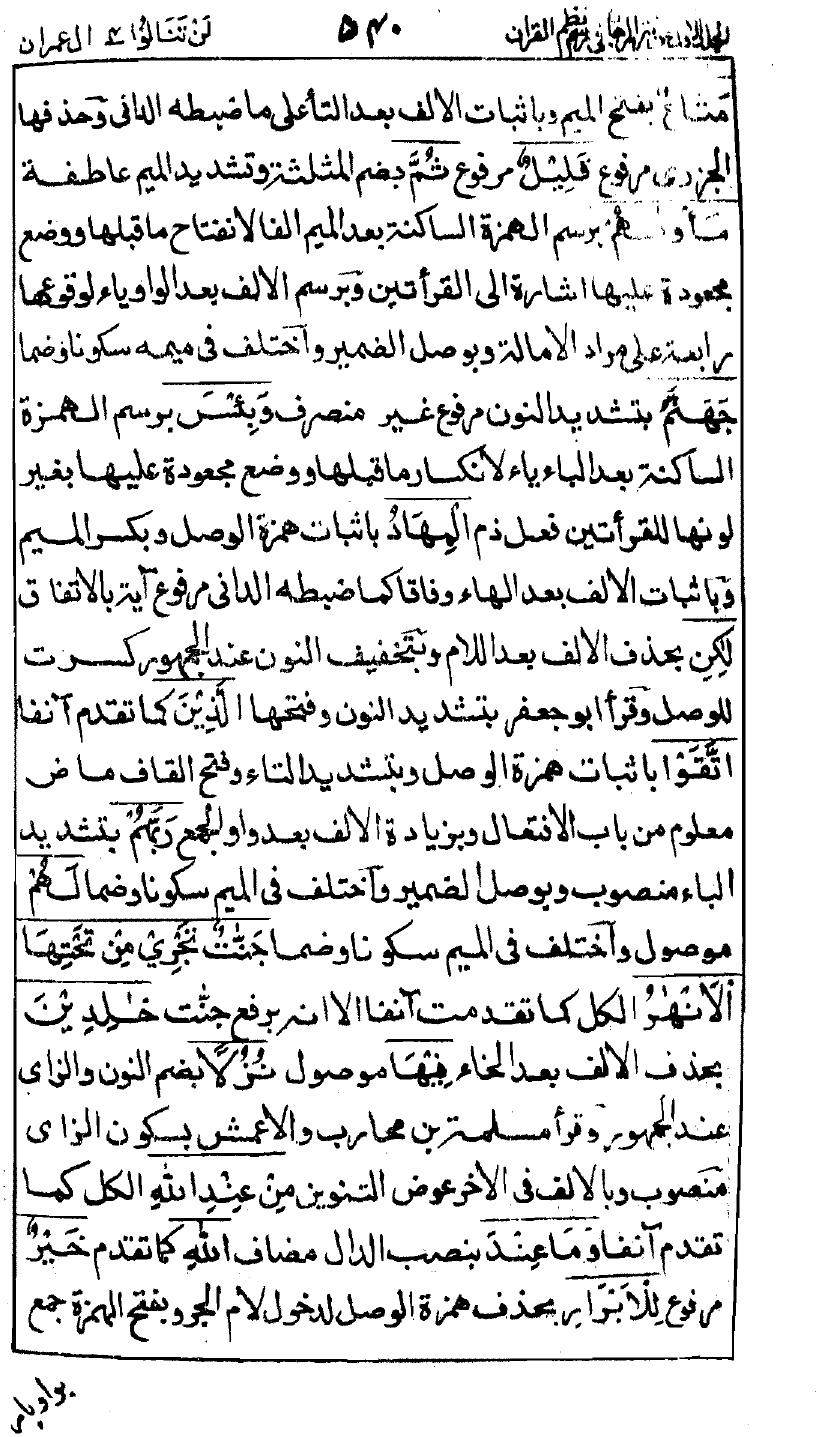 لن تنالوا ٤ ال عمران
٥٤٠
نثر المرجان في رسم نظم القران
مَتَاعٌ بفتح الميم وباثبات الالف بعد التاء على ما ضبطه الدانى وَحذفها
الجزرى مرفوع قَلِيْلٌ مرفوع ثُمَّ بضم المثلثة وتشديد الميم عاطفة
مَأوٰىهُمْ برسم الهمزة الساكنة بعد الميم الفا لانفتاح ما قبلها ووضع
مجعودة عليها اشارة الى القرأتين وَبرسم الالف بعد الواو ياء لوقوعها
رابعة على مراد الامالة وبوصل الضمير واختلف فى ميمه سكونا وضما
جَهَنَّمُ بتشديد النون مرفوع غير منصرف وَبِئْسَ برسم الهمزة
الساكنة بعد الباء ياء لانكسار ما قبلها ووضع مجعودة عليها بغير
لونها للقرأتين فعل ذم الْمِهَادُ باثبات همزة الوصل وبكسر الميم
وَباثبات الالف بعد الهاء وفاقا كما ضبطه الدانى مرفوع آية بالاتفاق
لٰكِنِ بحذف الالف بعد اللام وبتخفيف النون عند الجمهور كسرت
للوصل وقرأ ابو جعفر بتشديد النون وفتحها الَّذِيْنَ كما تقدم آنفا
اتَّقَوْا باثبات همزة الوصل وبتشديد التاء وفتح القاف ماض
معلوم من باب الافتعال وبزيادة الالف بعد واو الجمع رَبَّهُمْ بتشديد
الباء منصوب وبوصل الضمير واختلف فى الميم سكونا وضما لَهُمْ
موصول واختلف فى الميم سكونا وضما جَنّٰتٌ تَجْرِيْ مِنْ تَحْتِهَا
الْاَنْهٰرُ الكل كما تقدمت آنفا الا انه برفع جنّٰت خٰلِدِيْنَ
بحذف الالف بعد الخاء فِيْهَا موصول نُزُلًا بضم النون والزاى
عند الجمهور وقرأ مسلمة بن محارب والاعمش بسكون الزاى
منصوب وبالالف فى الاخر عوض التنوين مِنْ عِنْدِ اللهِ الكل كما
تقدم آنفا وَمَا عِنْدَ بنصب الدال مضاف اللهِ كما تقدم خَيْرٌ
مرفوع لِلْاَبْرَارِ بحذف همزة الوصل لدخول لام الجر وبفتح الهمزة جمع